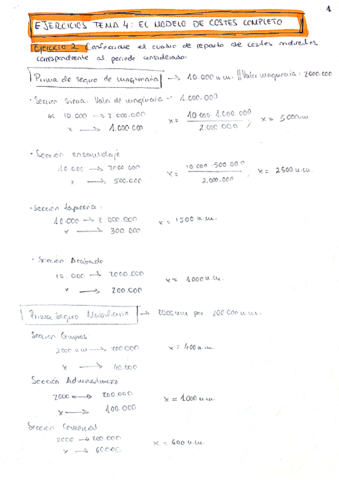 1
EJERCICIOS TEMA 4: EL MODELO DE COSTES COMPLETO
Ejercicio 2. Confeccionar el cuadro de reparto de costes indirectos
correspondiente al periodo considerado:
Prima de seguro de maquinaria → 10.000 u.m. || Valor maquinaria: 2000.000
· Sección Sierra. Valor de maquinaria - 1.000.000
10.000 → 2.000.000 x = 10.000 · 1.000.000 / 2.000.000 x = 5000 u.m
x → 1.000.000
· Sección ensamblaje
10.000 → 2000.000 x = 10.000 · 500.000 / 2.000.000 x = 2500 u.m.
x → 500.000
· Sección
10.000 → 2.000.000 x = 1500 u.m.
x → 300.000
· Sección Acabado
10.000 → 2000.000 x = 1000 u.m.
x → 200.000
Prima Seguro Mobiliario → 2000 u.m por 200.000 u.m.
Sección Compras
2000 u.m → 200.000 x = 400 u.m.
x → 40.000
Sección Administración
2000 → 200.000 x = 1000 u.m.
x → 100.000
Sección Comercial
2000 → 200.000 x = 600 u.m.
x → 60.000